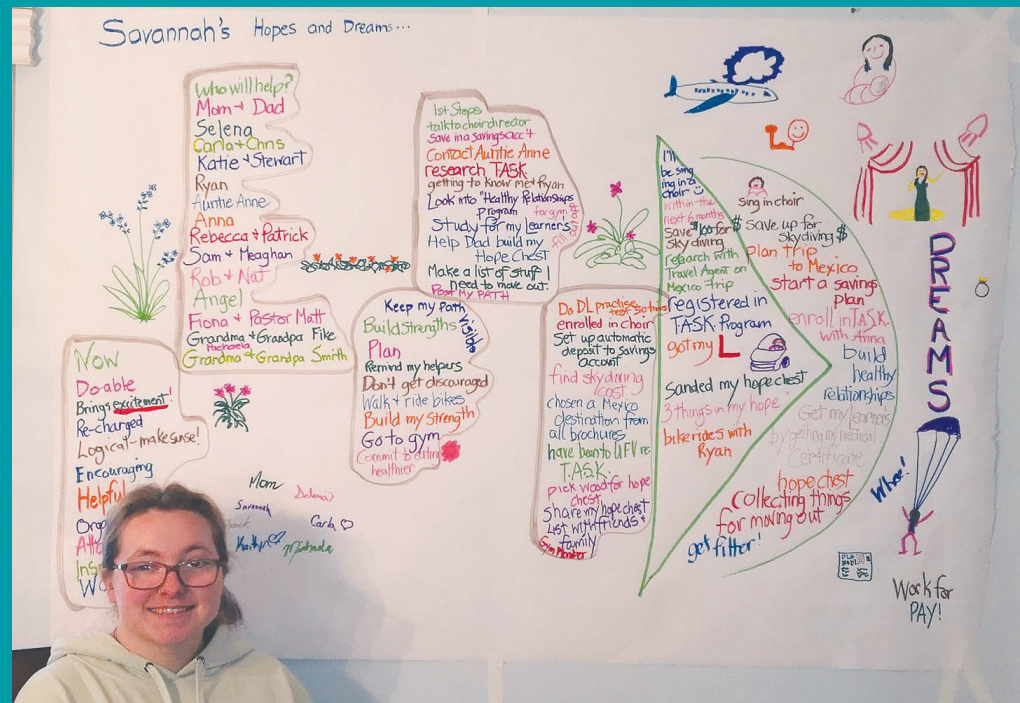 Savannah's Hopes and Dreams...
Who will help?
Mom + Dad
Selena
Carla + Chris
Katie + Stewart
Ryan
Auntie Anne
Anna
Rebecca + Patrick
Sam + Meaghan
Rob + Nat
Angel
Fiona + Pastor Matt
Grandma + Grandpa Fike
Michaela
Grandma + Grandpa Smith
Now
Do-able
Brings excitement!
Re-charged
Logical - make sense!
Encouraging
Helpful
Mom
Selena
Savannah
Carla
Kaitlyn
Michaela
1st Steps
talk to choir director
save in a savings acc't
Contact Auntie Anne
research T.A.S.K.
getting to know me + Ryan
Look into "Healthy Relationships
Program
Study for my Learners
fill out
form
for gym
Help Dad build my
Hope Chest
Make a list of stuff I
need to move out.
Post My PATH
Keep my Path
visible
Build Strengths
Plan
Remind my helpers
Don't get discouraged
Walk + ride bikes
Build my Strength
Go to gym
Commit to eating
healthier
Do DL practise
test
enrolled in choir
Set up automatic
deposit to savings
account
find skydiving
cost
chosen a Mexico
destination from
all brochures
have been to UFV re
T.A.S.K.
pick wood for hope
chest
share my hope chest
list with friends +
family
Gym Member
I'll
be sing
ing in a
choir
within the
next 6 months
Save $100 for
sky diving
research with
Travel Agent on
Mexico Trip
registered in
T.A.S.K. Program
got my L
Sanded my hope chest
3 things in my hope
bike rides with
Ryan
sing in choir
$ save up for
skydiving $
plan trip
to Mexico
start a savings
plan
enroll in T.A.S.K.
with Anna
build
healthy
relationships
Get my Learner's
by getting my medical
Certificate
hope chest
collecting things
for moving out
get fitter!
DREAMS
Whee!
Work for
PAY!